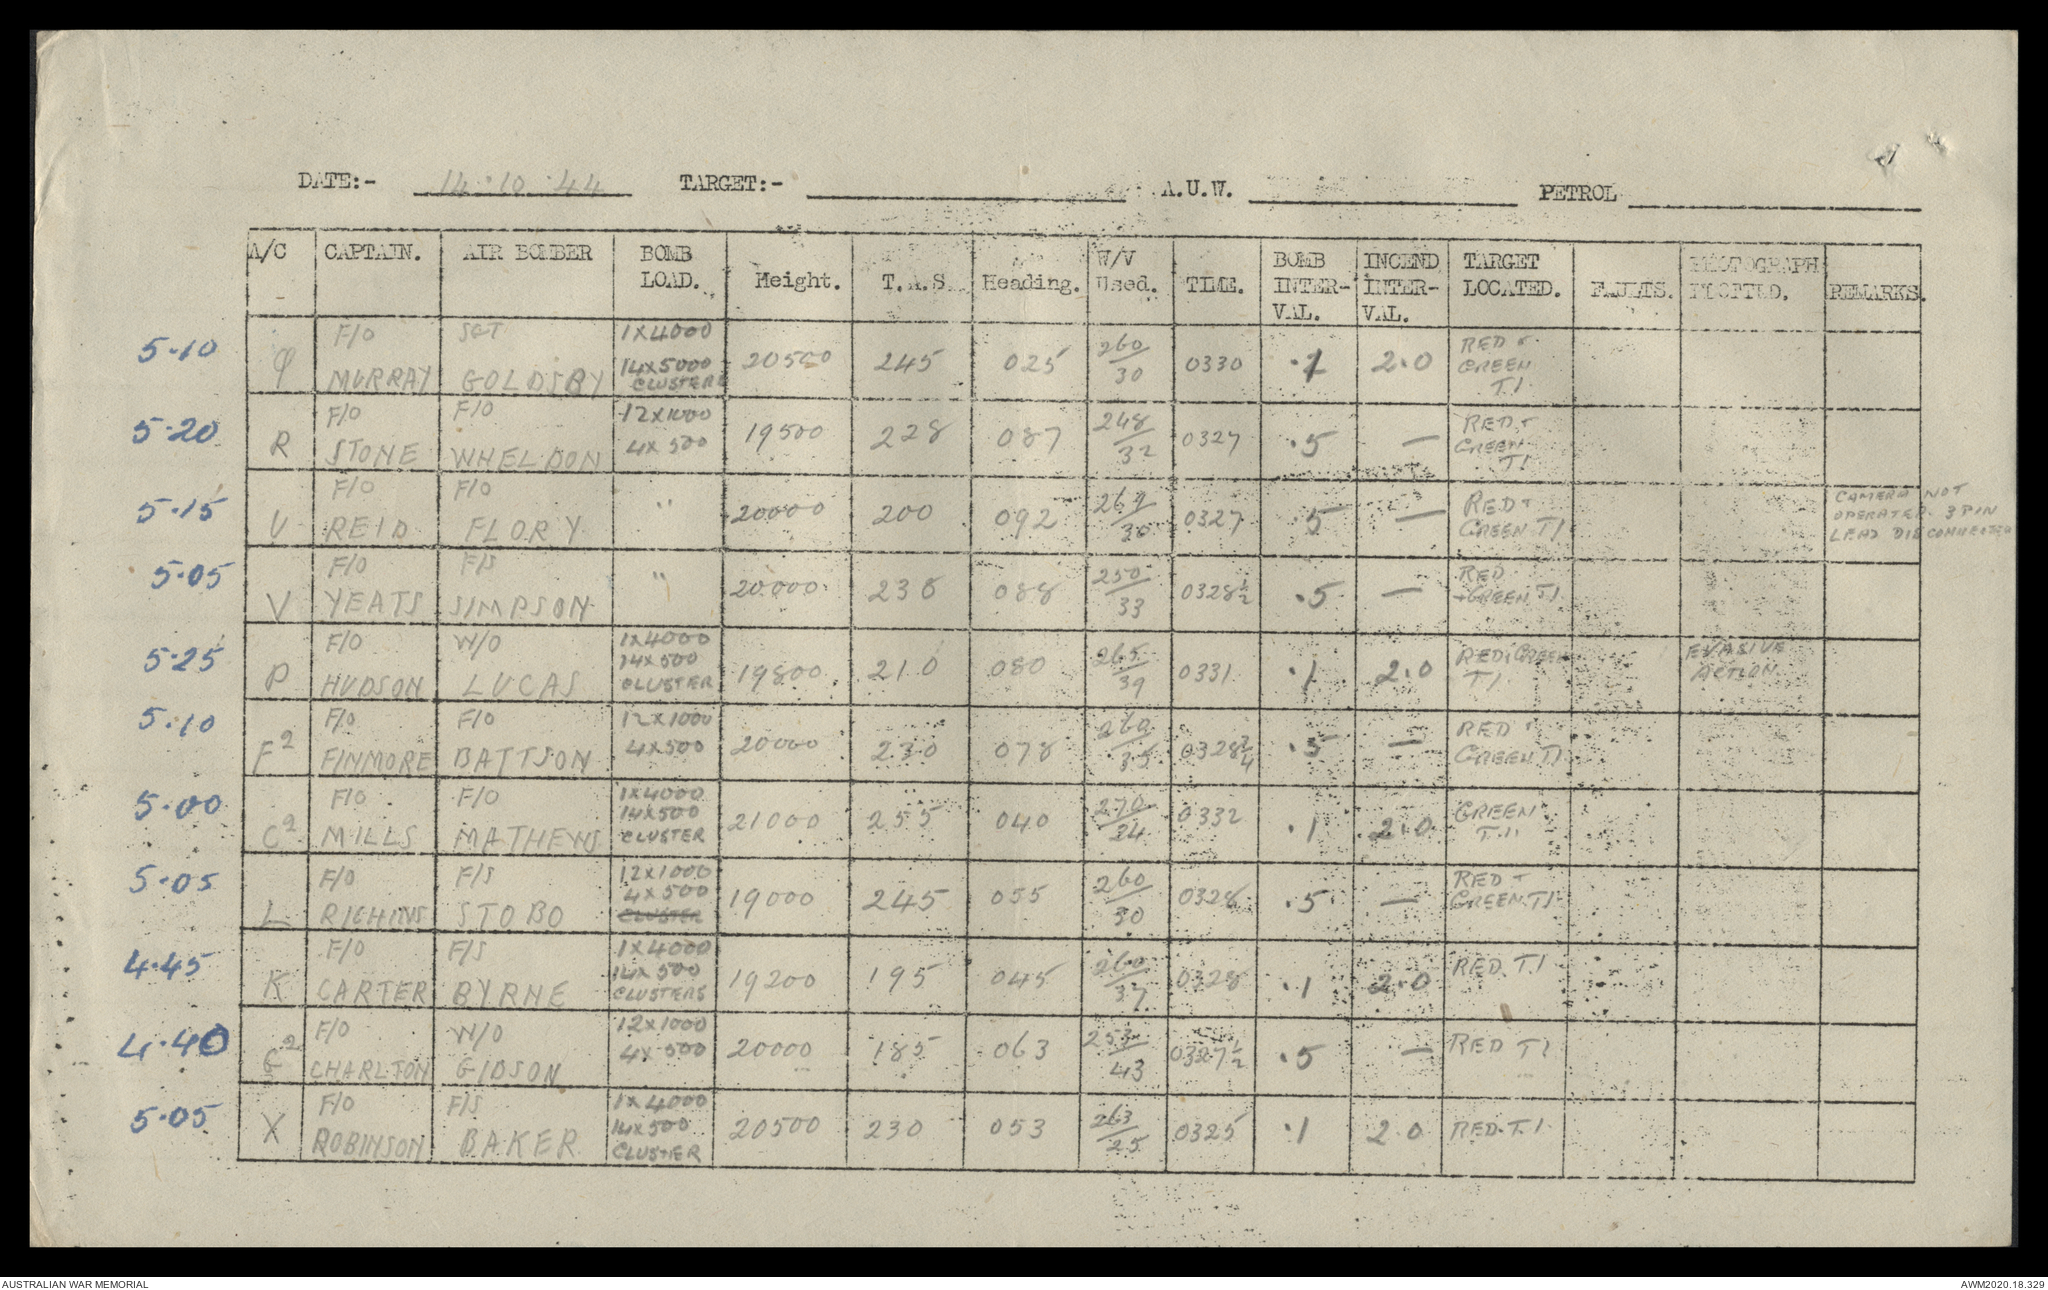 DATE:- 14·10·44 TARGET:- A.U.W. PETROL
A/C CAPTAIN. AIR BOMBER BOMB LOAD. Height. T.A.S. Heading. W/V Used. TIME. BOMB INTER-VAL. INCEND INTER-VAL. TARGET LOCATED. FAULTS. PHOTOGRAPH PLOTTED. REMARKS.
5·10 F/O MURRAY SGT GOLDSBY 1X4000 14X5000 CLUSTERS 20500 245 025 260/30 0330 ·1 2.0 RED + GREEN T.I.
5·20 R F/O STONE F/O WHELDON 12X1000 4X500 19500 228 087 248/32 0327 ·5 — RED + GREEN T.I
5·15 U F/O REID F/O FLORY " 20000 200 092 /30 0327 ·5 — RED + GREEN T.I CAMERA NOT OPERATED 3 PIN LEAD DISCONNECTED
5·05 V F/O YEATS F/S SIMPSON " 20000 088 250/33 0328½ ·5 — RED + GREEN T.I
5·25 P F/O HUDSON W/O LUCAS 1X4000 14X500 CLUSTER 19800 210 080 265/39 0331 ·1 2.0 RED + GREEN T.I EVASIVE ACTION
5·10 F2 F/O FINMORE F/O BATTSON 12X1000 4X500 20000 230 078 260/35 0328¾ ·5 — RED + GREEN T.I
5·00 C2 F/O MILLS F/O MATHEWS 1X4000 14X500 CLUSTER 21000 255 040 270/34 0332 ·1 2.0 GREEN T.I
5·05 L F/O F/S STOBO 12X1000 4X500 CLUSTER 19000 245 055 260/30 0328 ·5 — RED + GREEN T.I
4·45 K F/O CARTER F/S BYRNE 1X4000 14X500 CLUSTERS 19200 195 045 260/37 0328 ·1 2.0 RED T.I
4·40 F/O CHARLTON W/O GIBSON 12X1000 4X500 20000 185 063 253/43 0327½ ·5 — RED T.I
5·05 X F/O ROBINSON F/S BAKER 1X4000 14X500 CLUSTER 20500 230 053 263/25 0325 ·1 2.0 RED T.I
AUSTRALIAN WAR MEMORIAL AWM2020.18.329